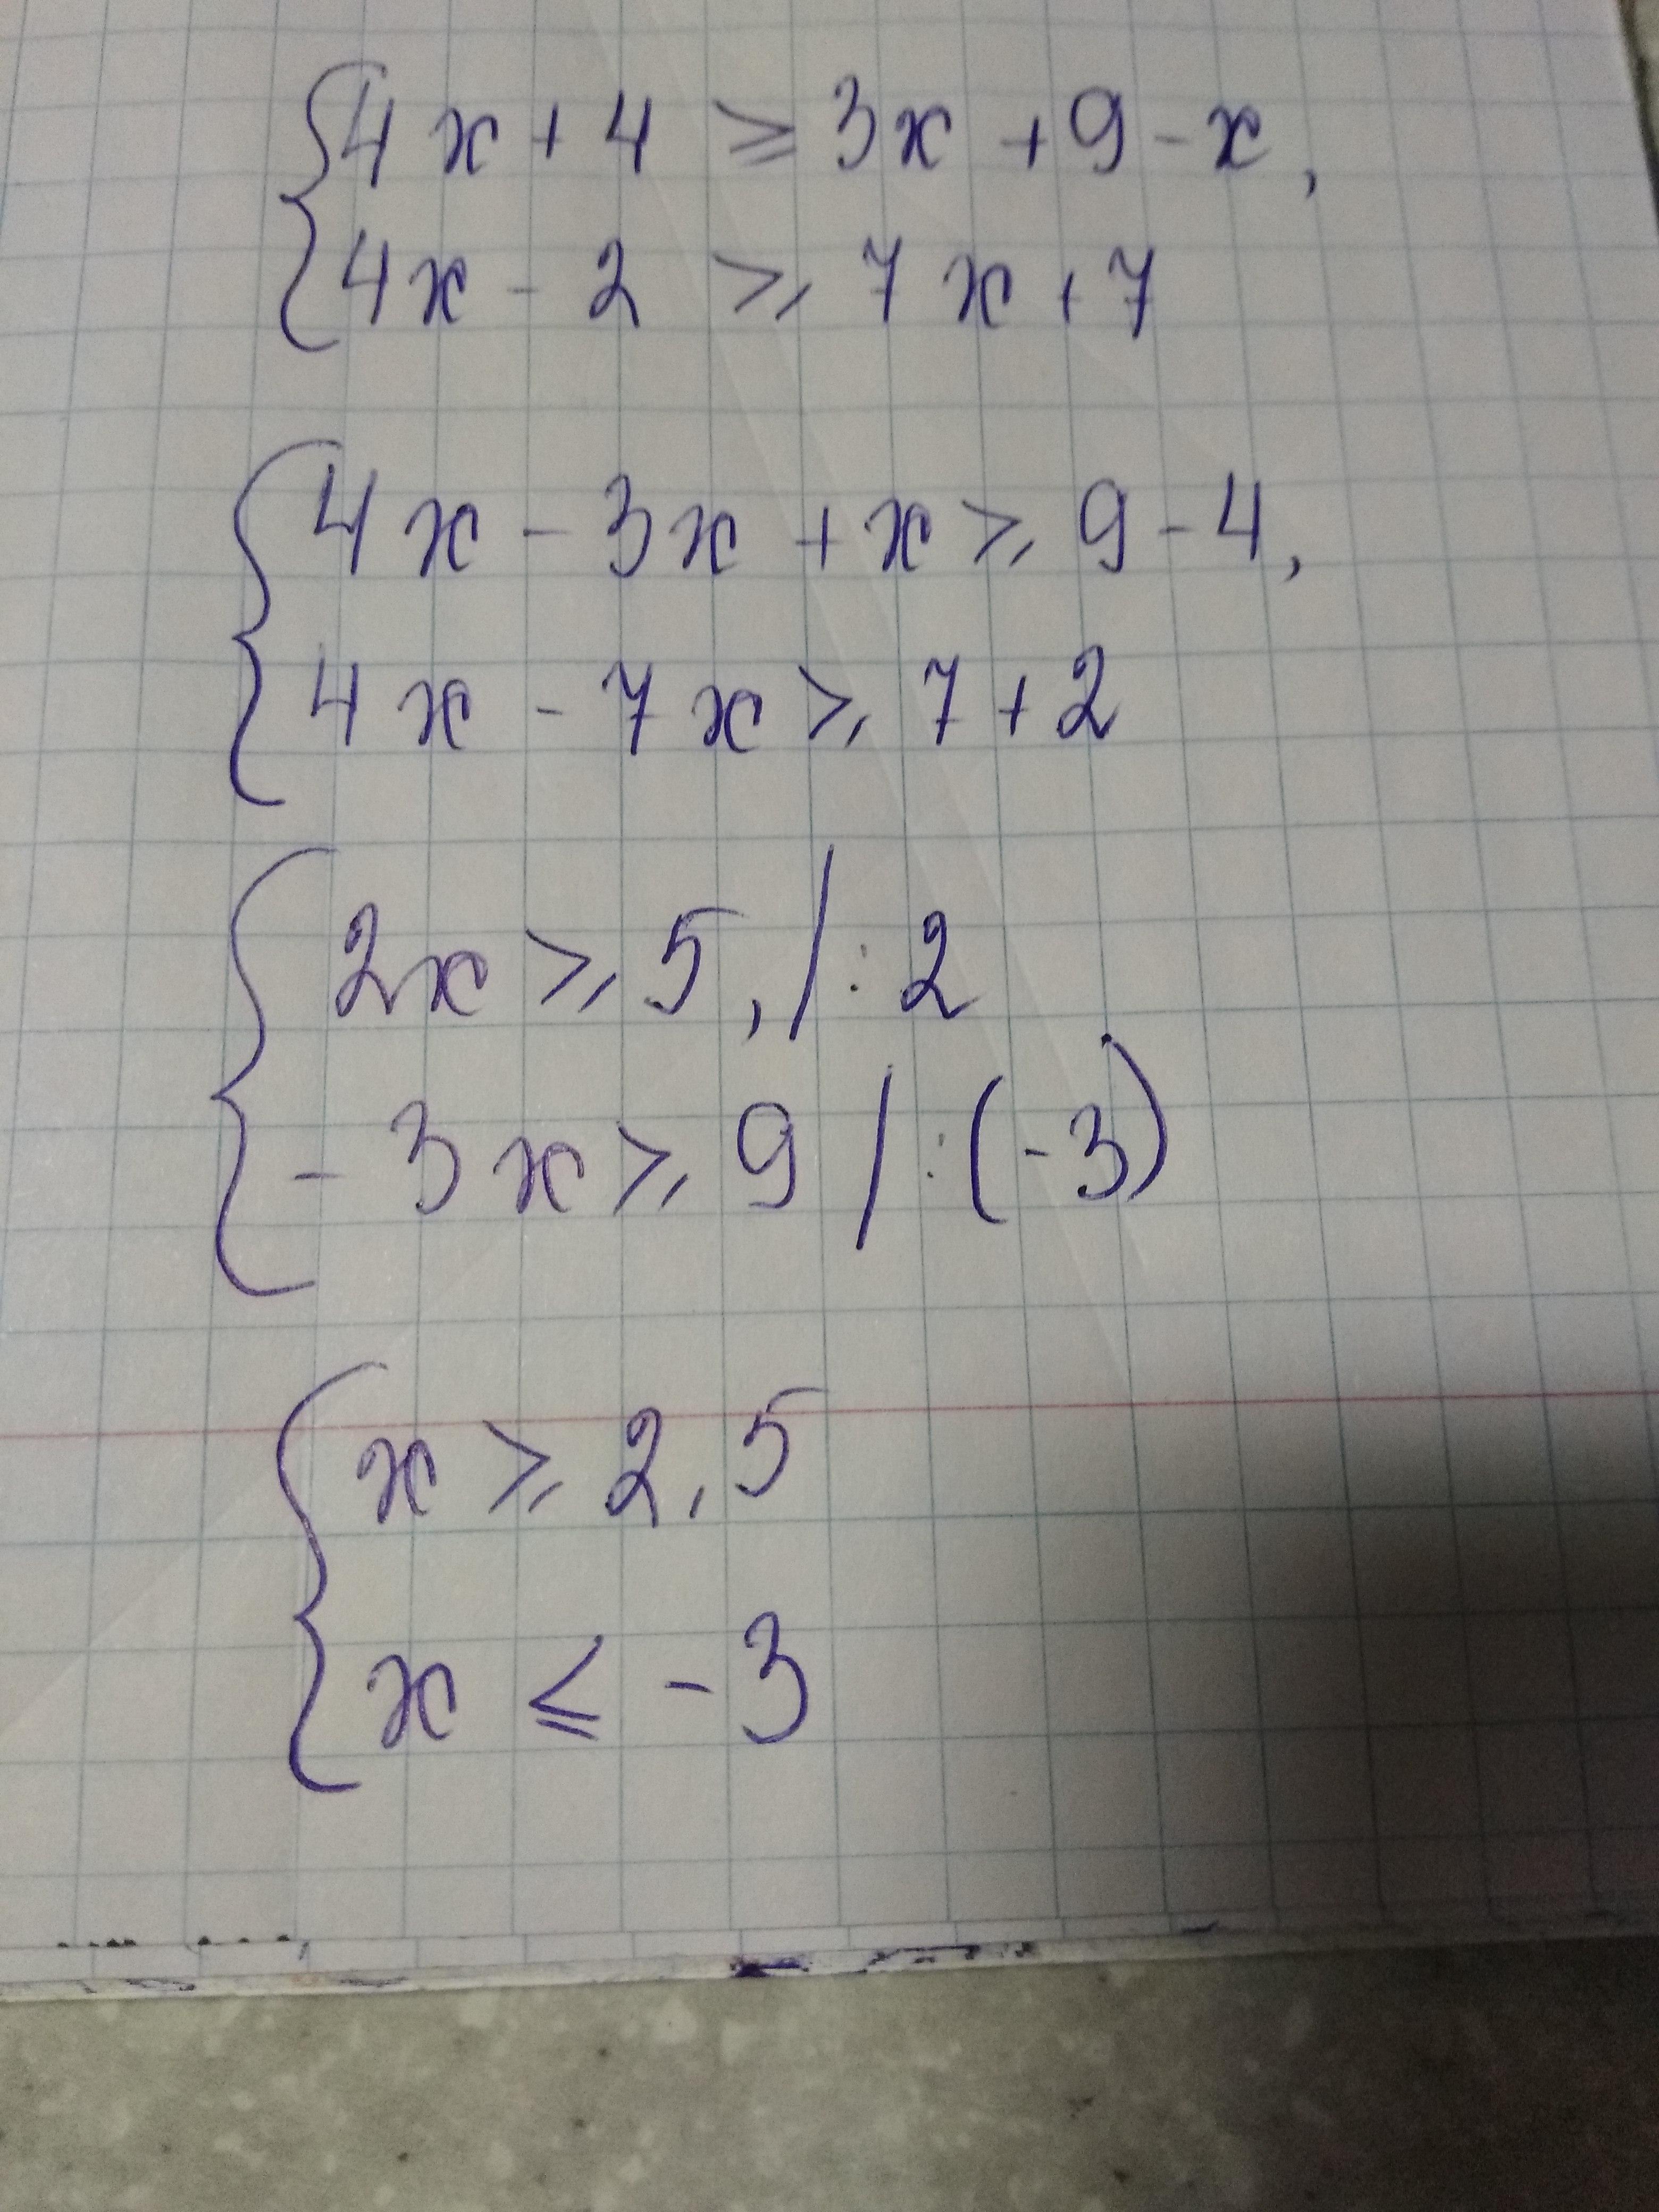 {4x + 4 ⩾ 3x + 9 - x,
4x - 2 ⩾ 7x + 7
{4x - 3x + x ⩾ 9 - 4,
4x - 7x ⩾ 7 + 2
{2x ⩾ 5, / : 2
- 3x ⩾ 9 / : (-3)
{x ⩾ 2,5
x ⩽ - 3